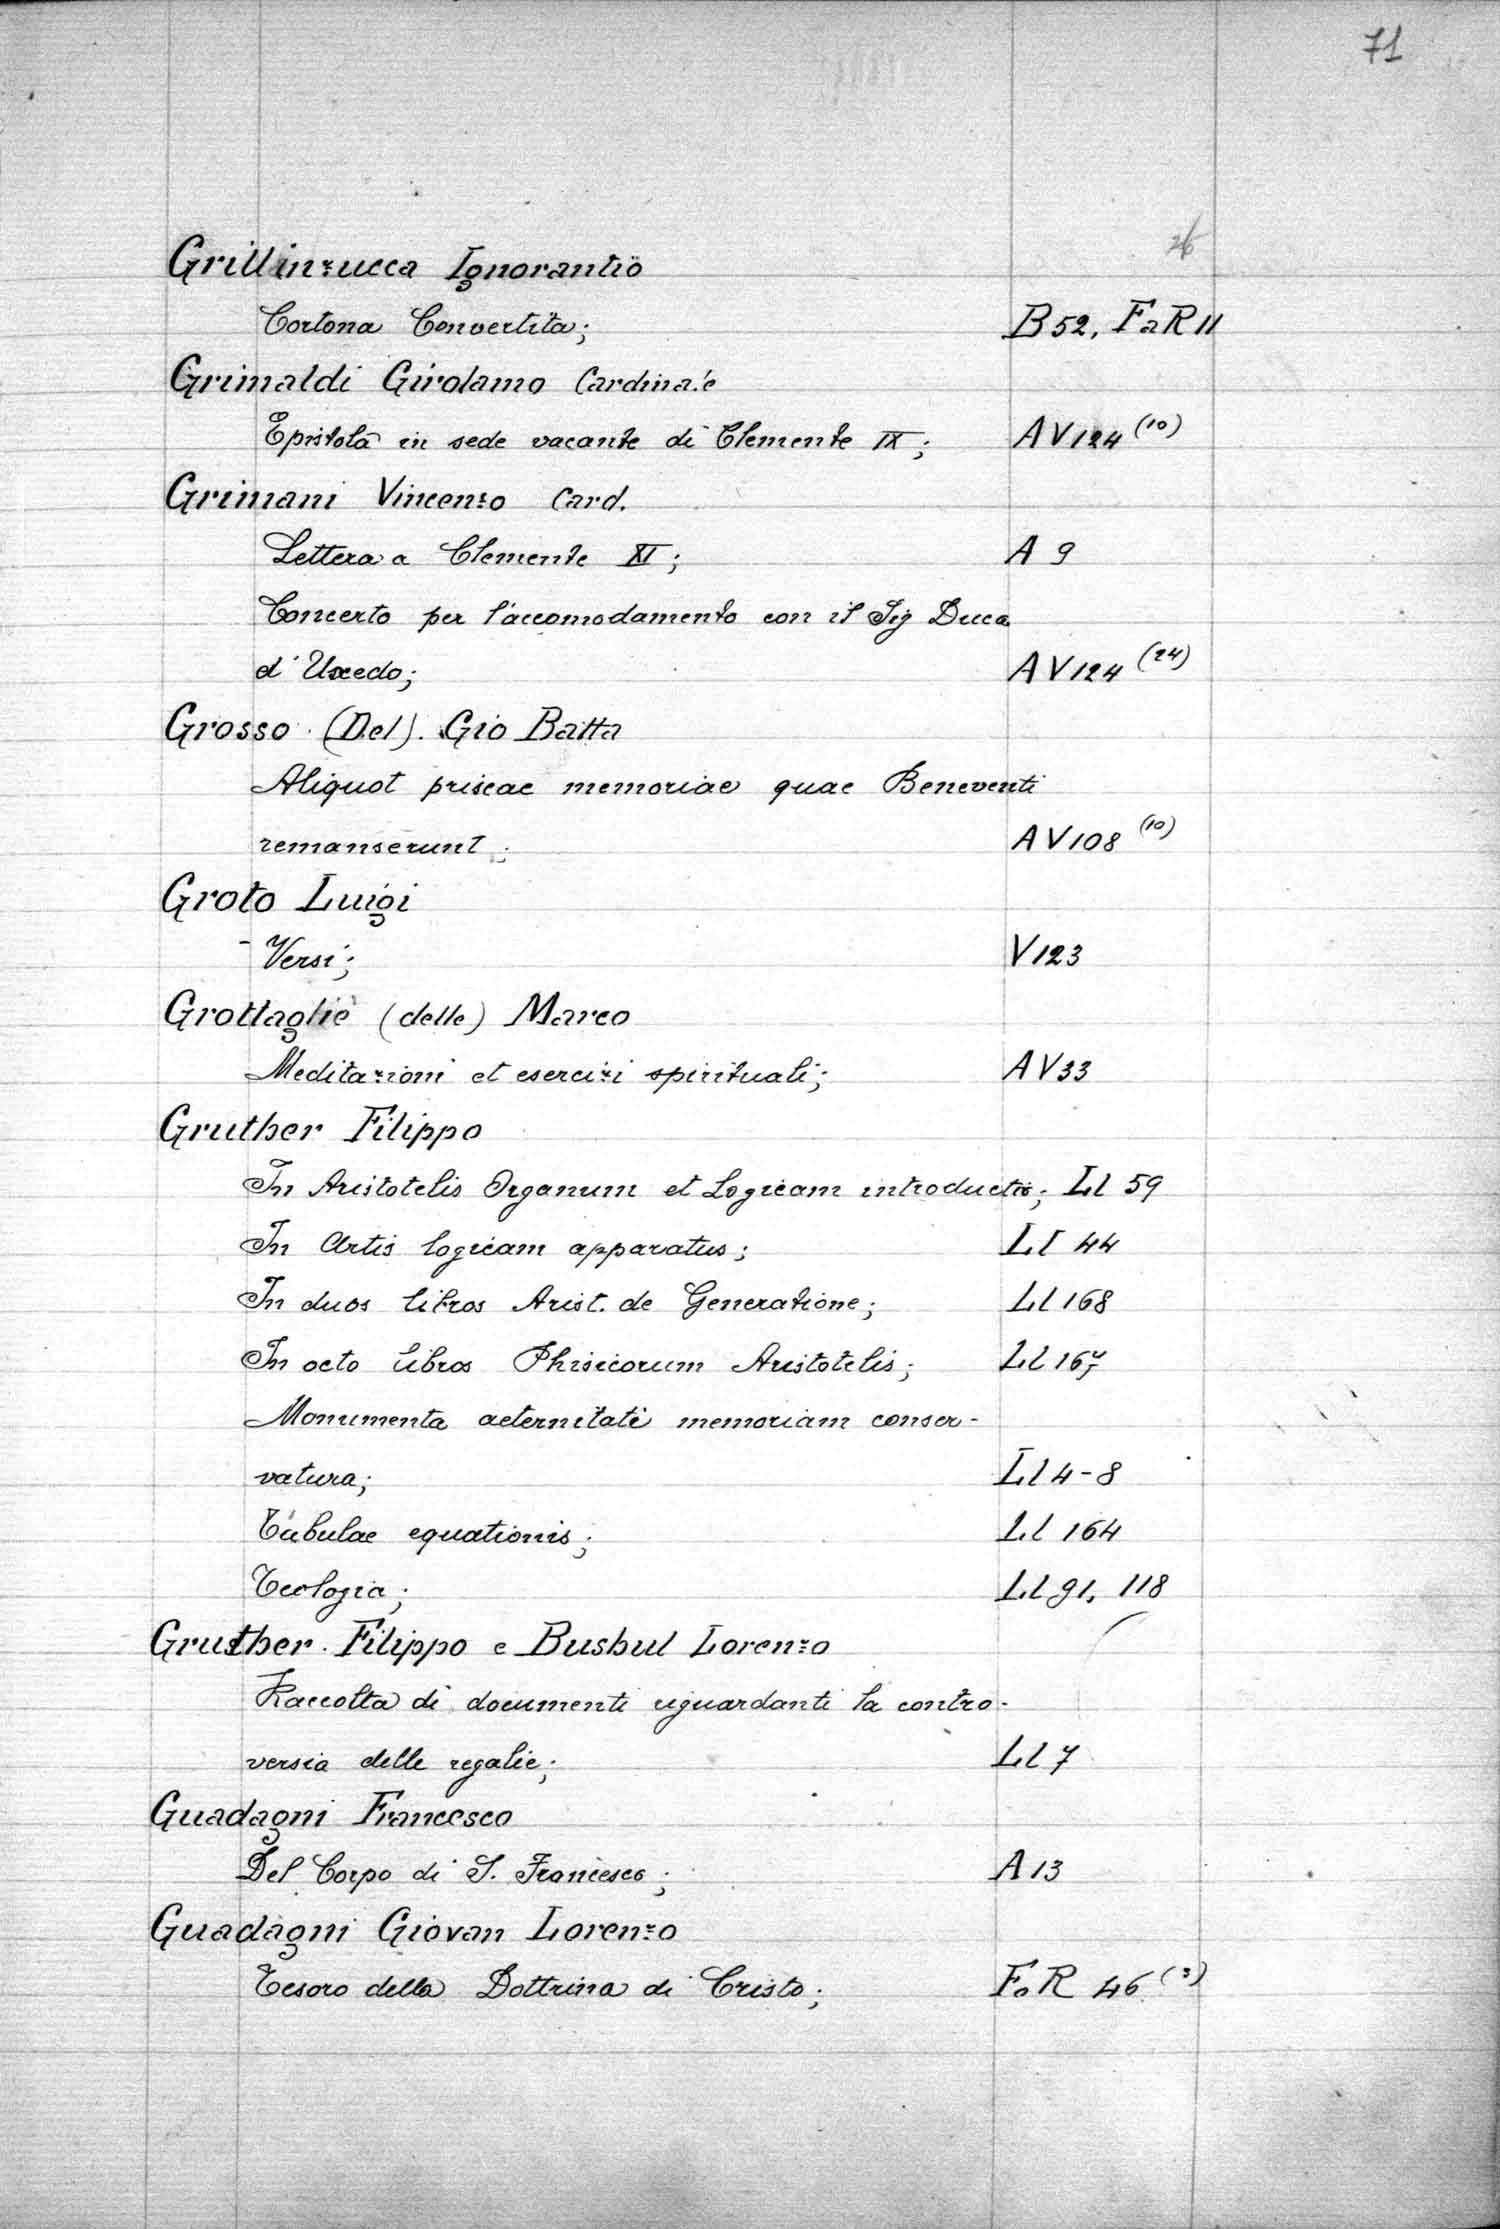 71
26
Grillinzucca Ignorantio
Cortona Convertita; B 52, Fa R 11
Grimaldi Girolamo Cardinale
Epistola in sede vacante di Clemente IX; A V 124 (10)
Grimani Vincenzo Card.
Lettera a Clemente XI; A 9
Concerto per l'accomodamento con il Sig Duca
d'Uxedo; A V 124 (24)
Grosso (Del). Gio Batta
Aliquot priscae memoriae quae Beneventi
remanserunt; A V 108 (10)
Groto Luigi
- Versi; V 123
Grottaglie (delle) Marco
Meditazioni et esercizi spirituali; A V 33
Gruther Filippo
In Aristotelis Organum et Logicam introductio; Ll 59
In Artis logicam apparatus; Ll 44
In duos libros Arist. de Generatione; Ll 168
In octo libros Phisicorum Aristotelis; Ll 167
Monumenta aeternitati memoriam conser-
vatura; Ll 4-8
Tabulae equationis; Ll 164
Teologia; Ll 91, 118
Gruther Filippo e Busbul Lorenzo
Raccolta di documenti riguardanti la contro-
versia delle regalie; Ll 7
Guadagni Francesco
Del Corpo di S. Francesco; A 13
Guadagni Giovan Lorenzo
Tesoro della Dottrina di Cristo; Fo R 46 (3)